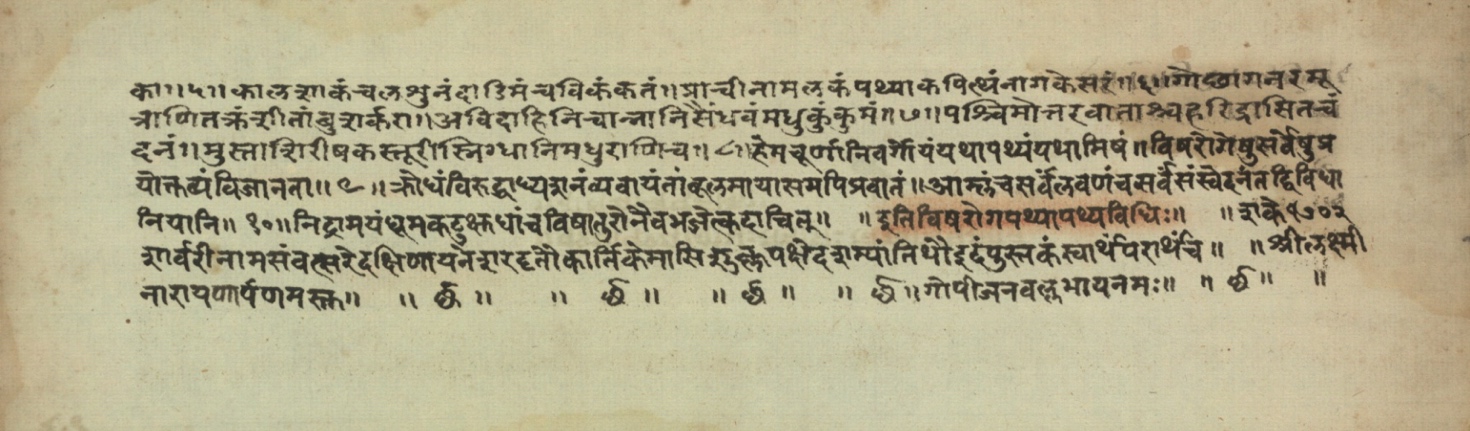 का॥५॥कालशाकंचलशुनंदाडिमंचविकंकतं॥प्राचीनामलकंपथ्याकपित्थंनागकेसरं॥६॥गोछागनरमू
त्राणितक्रंशीतांबुशर्करा॥अविदाहिनिचान्नानिसैंधवंमधुकुंकुमं॥७॥पश्चिमोत्तरवाताश्चहरिद्रासितचं
दनं॥मुस्ताशिरीषकस्तूरीस्निग्धानिमधुराणिच॥८॥हेमचूर्णानिवर्गोयंयथापथ्यंयथामिषं॥विषरोगेषुसर्वेषुप्र
योक्तव्यंविजानता॥९॥क्रोधंविरुद्धाध्यशनंव्यवायंतांबूलमायासमपिप्रवातं॥आम्लंचसर्वंलवणंचसर्वंसंस्वेदनंतद्विविधा
नियानि॥१०॥निद्राभयंधूमकटुक्तधांचविषातुरोनैवभजेत्कदाचित्॥ ॥इतिविषरोगपथ्यापथ्यविधिः॥ ॥शके१७०२
शार्वरीनामसंवत्सरेदक्षिणायनेशरदृतौकार्तिकेमासिशुक्लपक्षेदशम्यांतिथौइदंपुस्तकंस्वार्थंपरार्थंच॥ ॥श्रीलक्ष्मी
नारायणार्पणमस्तु॥ ॥छ॥ ॥छ॥ ॥छ॥ ॥छ॥गोपीजनवल्लभायनमः॥ ॥छ॥ ॥